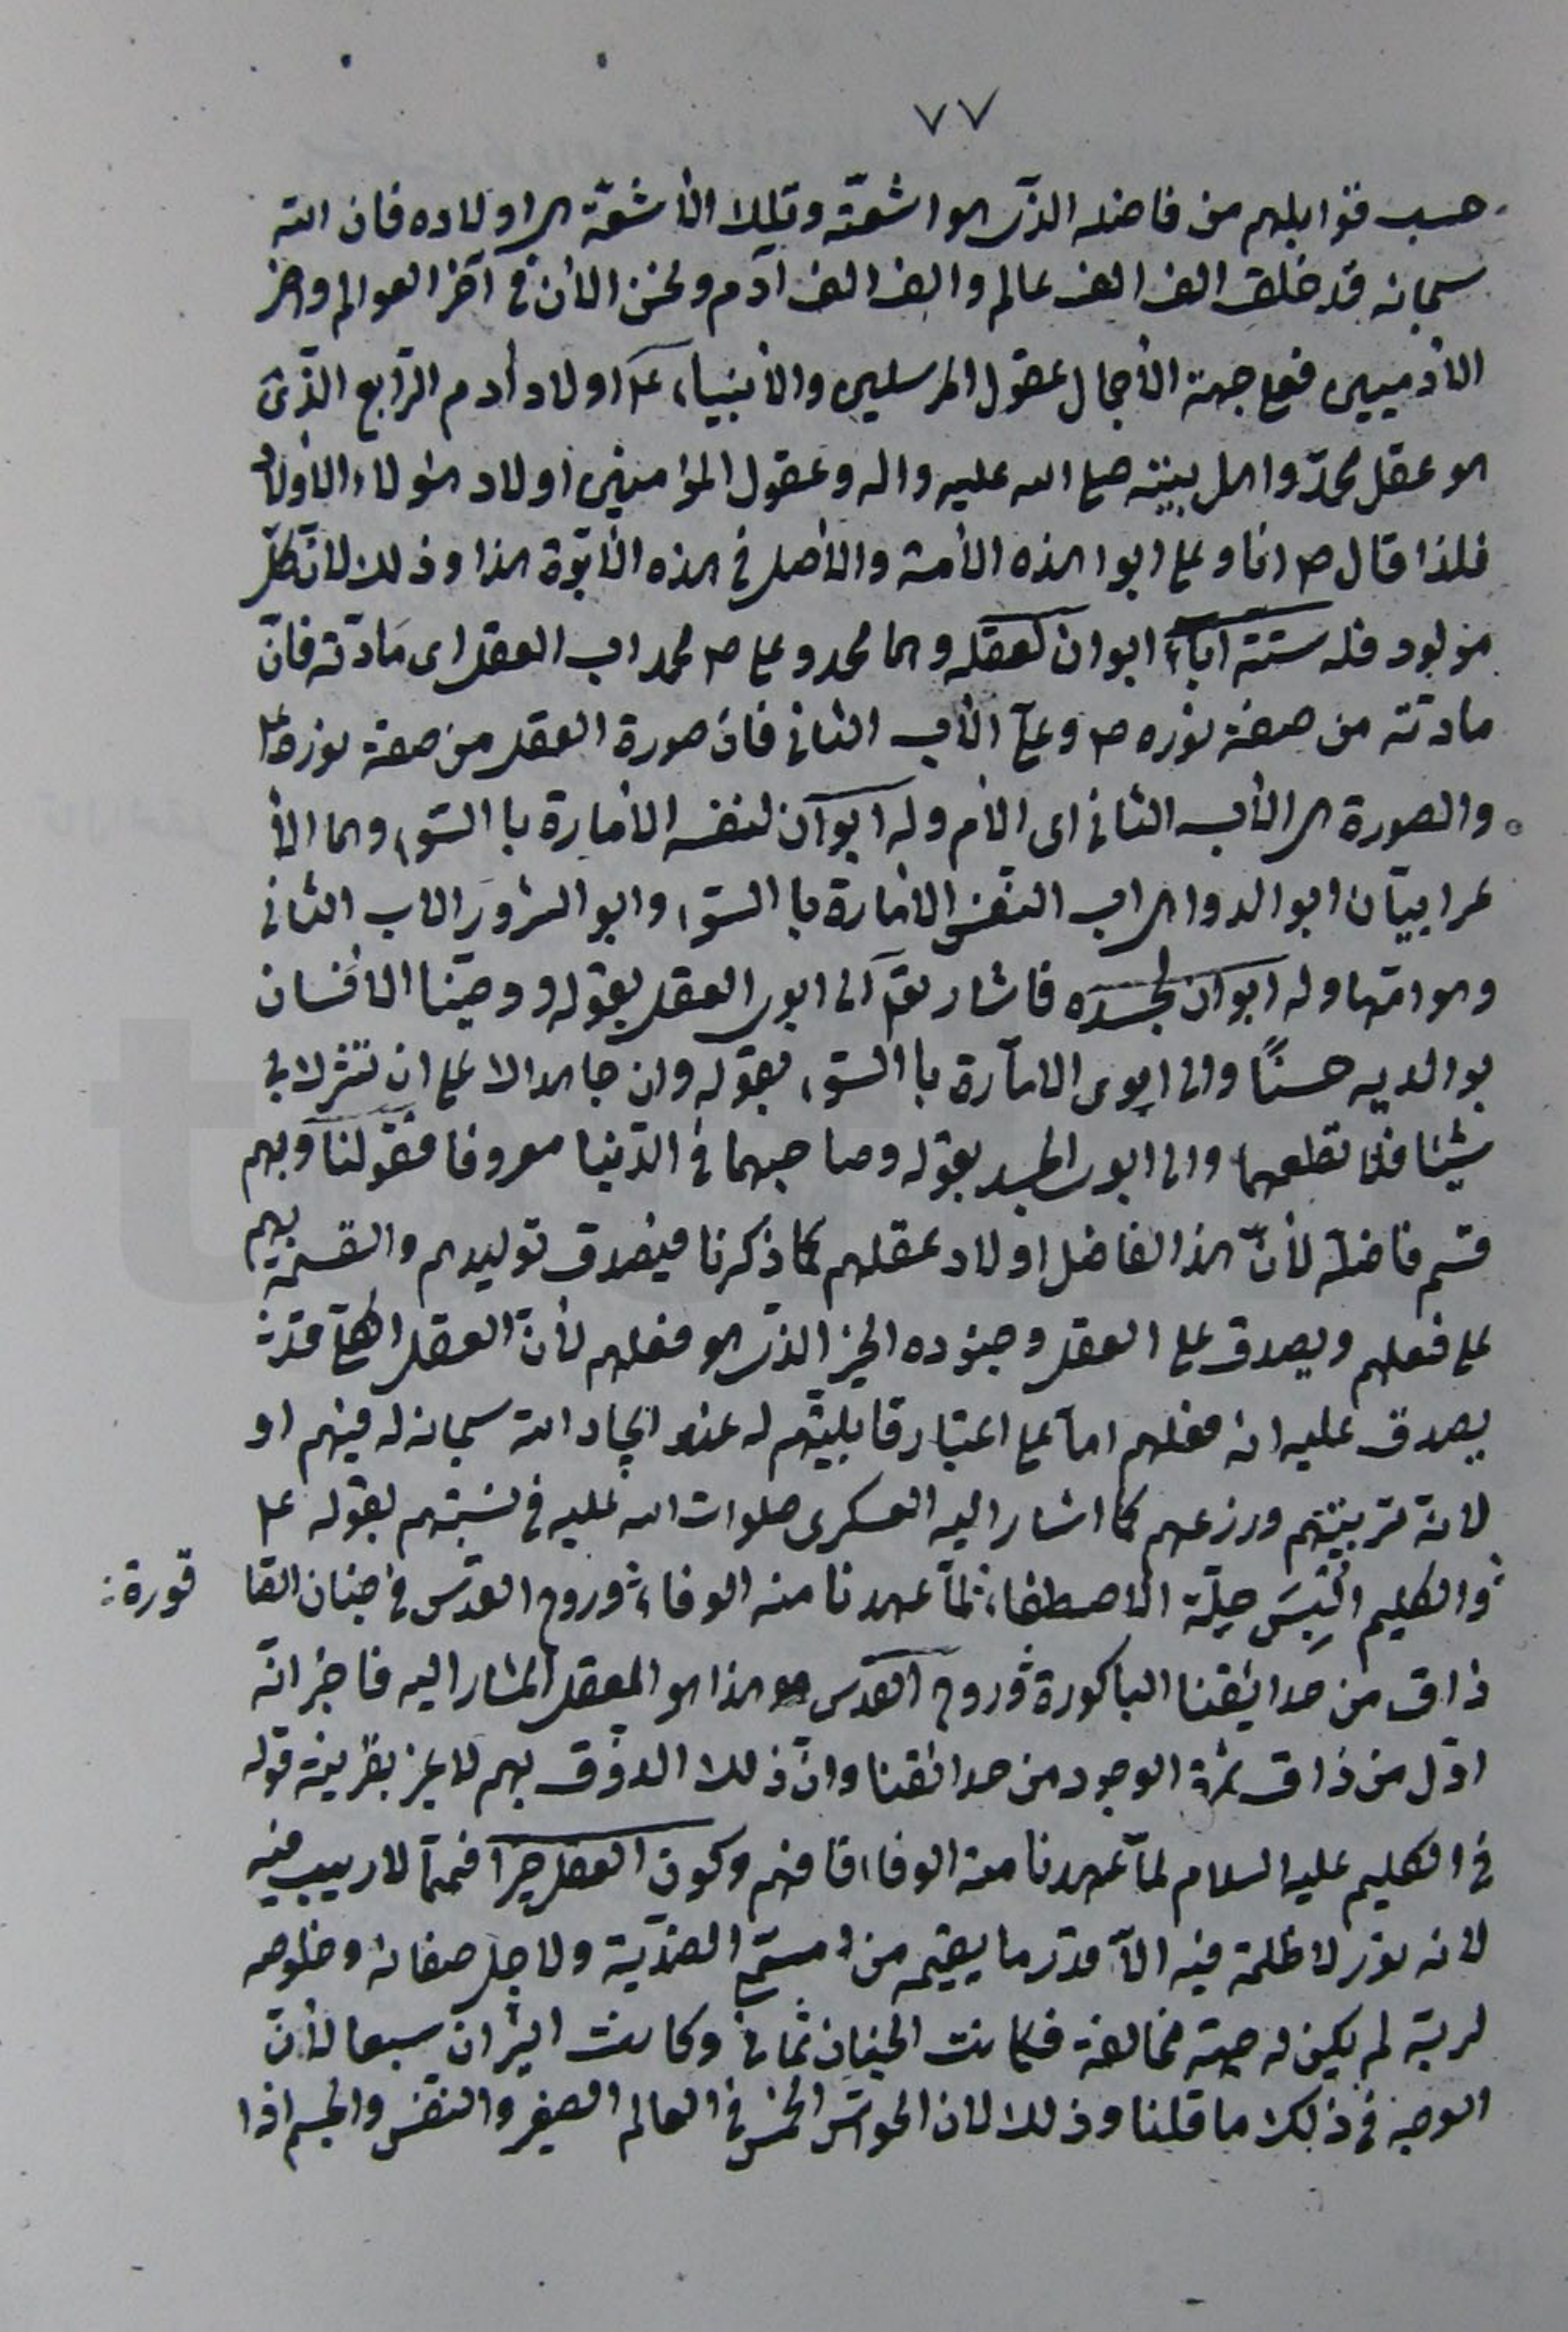 ٧٧
حسب قوابلهم من فاضله الذى هو اشعته وتلك الأشعّة هى اولاده فان الله
سبحانه قد خلق الف الف عالم والف الف آدم ونحن الأن فى آخر العوالم واخر
الأدميين فعلى جهة الأجمال عقول المرسلين والأنبياء ع اولاد أدم الرابع الّذى
هو عقل محمّد واهل بيته صلى الله عليه واله وعقول المؤمنين اولاد هؤلاء الأولاد
فلذا قال ص انا وعلى ابوا هذه الأمة والأصل فى هذه الأبوّة هذا وذلك لان كلّ
مولود فله ستة اباء ابوان لعقله وهما محمد وعلى ص محمد اب العقل اى مادّته فانّ
مادته من صفة نوره ص وعلى الأب الثانى فان صورة العقل من صفة نوره ع
والصورة هى الأب الثانى اى الأم وله ابوان لنفسه الامارة باالسّوء وهما الأ
عرابيّان ابو الدواهى اب النفس الامارة باالسّوء وابو الشرور الاب الثانى
وهو امّها وله ابوان لجسده فاشار تعالى الى ابوى العقل بقوله ووصّينا الأنسان
بوالديه حسنًا والى ابوى الامّارة باالسّوء بقوله وان جاهداك على ان تشرك بى
شيئا فلا تطعهما والى ابوى الجسد بقوله وصاحبهما فى الدّنيا معروفا فقولنا وبهم
قسم فاضله لأنّ هذا الفاضل اولاد عقلهم كما ذكرنا فيصدق توليدهم والقسمة بهم
على فعلهم ويصدق على العقل وجنوده الخير الذى هو فعلهم لأنّ العقل
يصدق عليه انه فعلهم امّا على اعتبار قابليّتهم له عند ايجاد الله سبحانه له فيهم او
لانه تربيتهم وزرعهم كما اشار اليه العسكرى صلوات الله عليه فى نسبتهم بقوله ع
والكليم اُلْبِسَ حلّة الاصطفاء لمّا عهدنا منه الوفاء وروح القدس فى جنان الصّا قورة
ذاق من حدائقنا الباكورة وروح القدس هو هذا هو العقل المشار اليه فاخبر انّه
اوّل من ذاق ثمرة الوجود من حدائقنا وانّ ذلك الذوق بهم لا غير بقرينة قوله
فى الكليم عليه السلام لمّا عهدنا منه الوفاء فافهم وكون العقل خيرا فممّا لا ريب فيه
لانه نور لا ظلمة فيه الّا قدر ما يقيمه من الضدّية ولاجل صفائه وخلوصه
لربّه لم يكن له جهة مخالفة فكانت الجنان ثمانى وكانت النيران سبعا لأنّ
الوجه فى ذلك ما قلنا وذلك لان الحواس الخمس فى العالم الصغير والنفس والجسم اذا